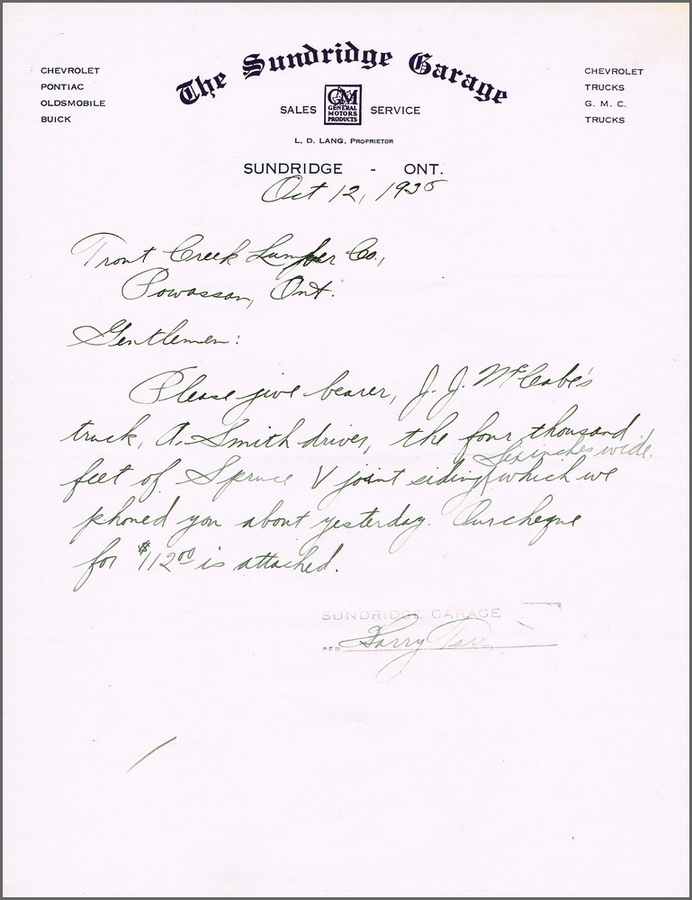 The Sundridge Garage
CHEVROLET
PONTIAC
OLDSMOBILE
BUICK
SALES GM GENERAL MOTORS PRODUCTS SERVICE
CHEVROLET
TRUCKS
G. M. C.
TRUCKS
L. D. LANG, PROPRIETOR
SUNDRIDGE - ONT.
Oct 12, 1935
Trout Creek Lumber Co.,
Powassan, Ont.
Gentlemen:
Please give bearer, J. J. McCabe's
truck, A. Smith driver, the four thousand
six inches wide.
feet of Spruce V joint siding which we
phoned you about yesterday. Our cheque
for $112.00 is attached.
SUNDRIDGE GARAGE
PER Harry